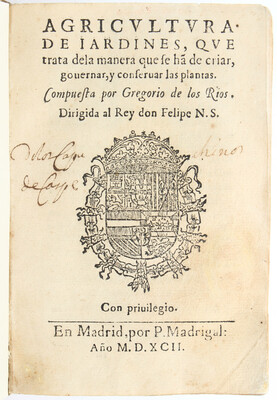 AGRICVLTVRA
DE IARDINES, QVE
trata dela manera que se hã de criar,
gouernar, y conseruar las plantas.
Compuesta por Gregorio de los Rios.
Dirigida al Rey don Felipe N. S.
Con priuilegio.
En Madrid, por P. Madrigal:
Año M. D. XCII.